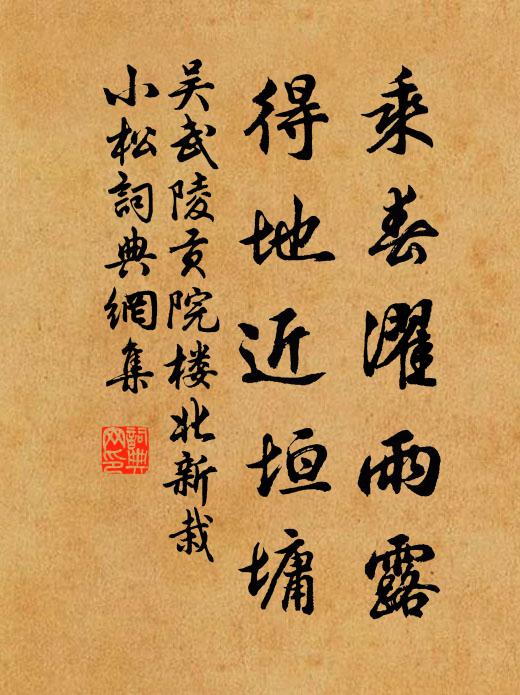 乘春濯雨露
得地近垣墉
吴武陵贡院楼北新栽
小松詞典網集
詞典網印